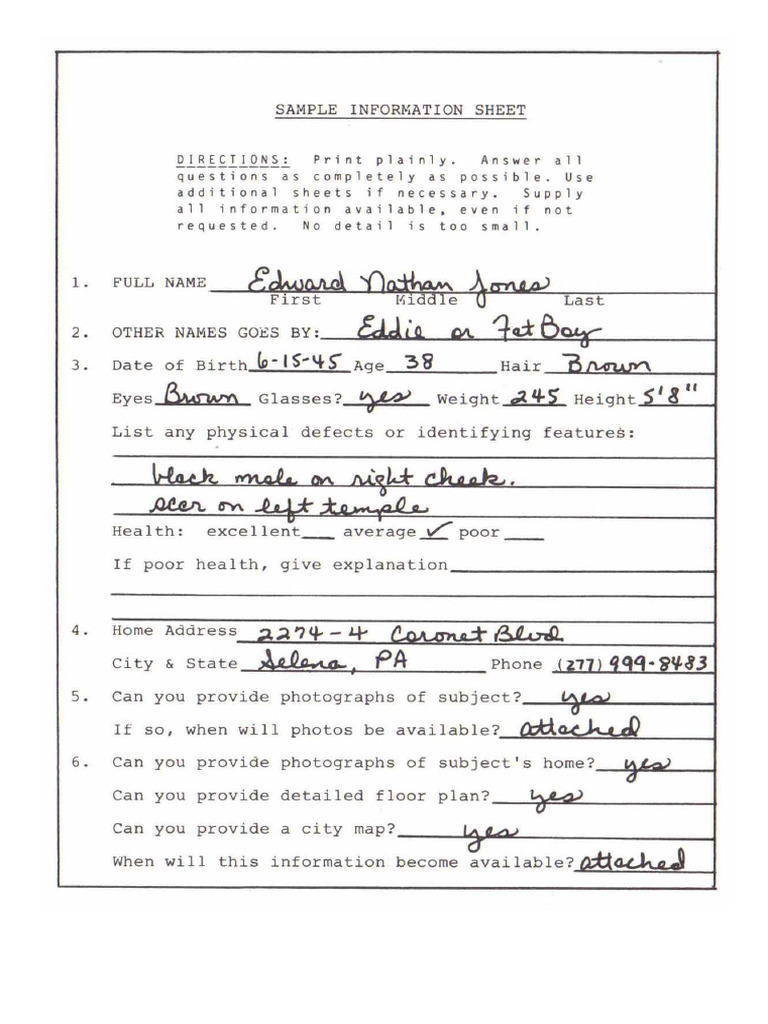 SAMPLE INFORMATION SHEET
DIRECTIONS: Print plainly. Answer all
questions as completely as possible. Use
additional sheets if necessary. Supply
all information available, even if not
requested. No detail is too small.
1. FULL NAME Edward Nathan Jones
First Middle Last
2. OTHER NAMES GOES BY: Eddie or Fat Boy
3. Date of Birth 6-15-45 Age 38 Hair Brown
Eyes Brown Glasses? yes Weight 245 Height 5'8"
List any physical defects or identifying features:
black mole on right cheek.
scar on left temple
Health: excellent___ average ✓ poor ___
If poor health, give explanation
4. Home Address 2274-4 Coronet Blvd
City & State Selena, PA Phone (277) 999-8483
5. Can you provide photographs of subject? yes
If so, when will photos be available? attached
6. Can you provide photographs of subject's home? yes
Can you provide detailed floor plan? yes
Can you provide a city map? yes
When will this information become available? attached